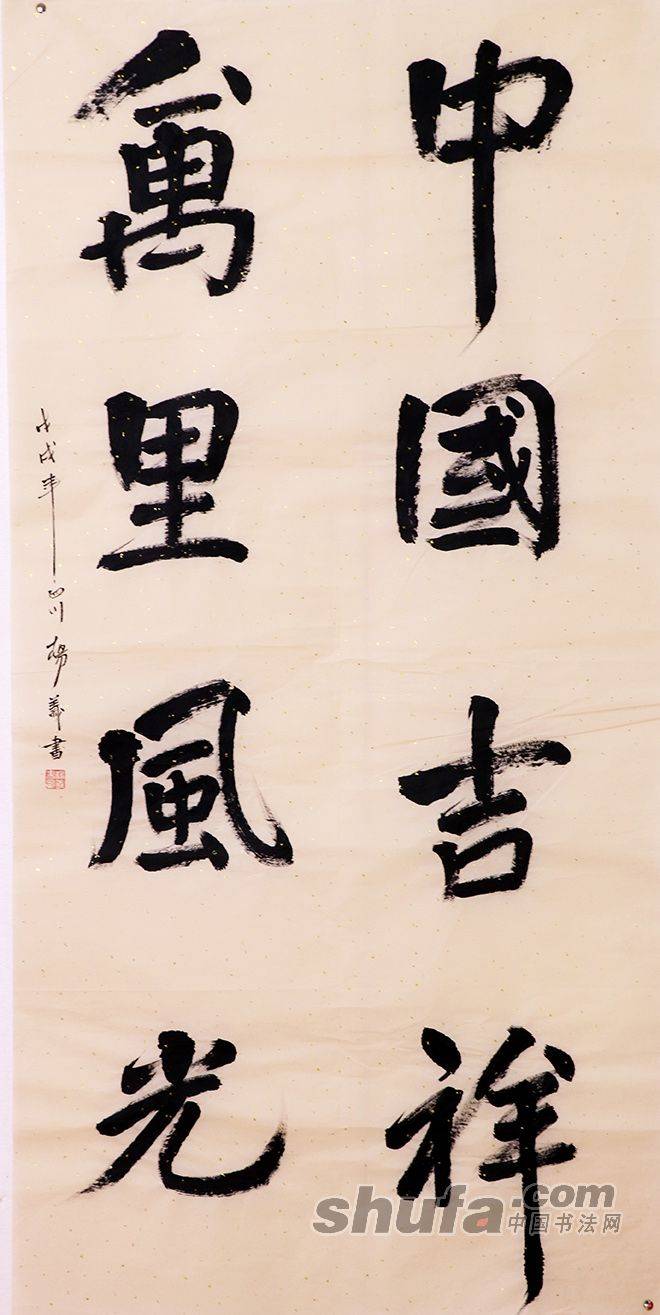 中國吉祥
萬里風光
戊戌年四川楊義書
shufa.com
中国书法网